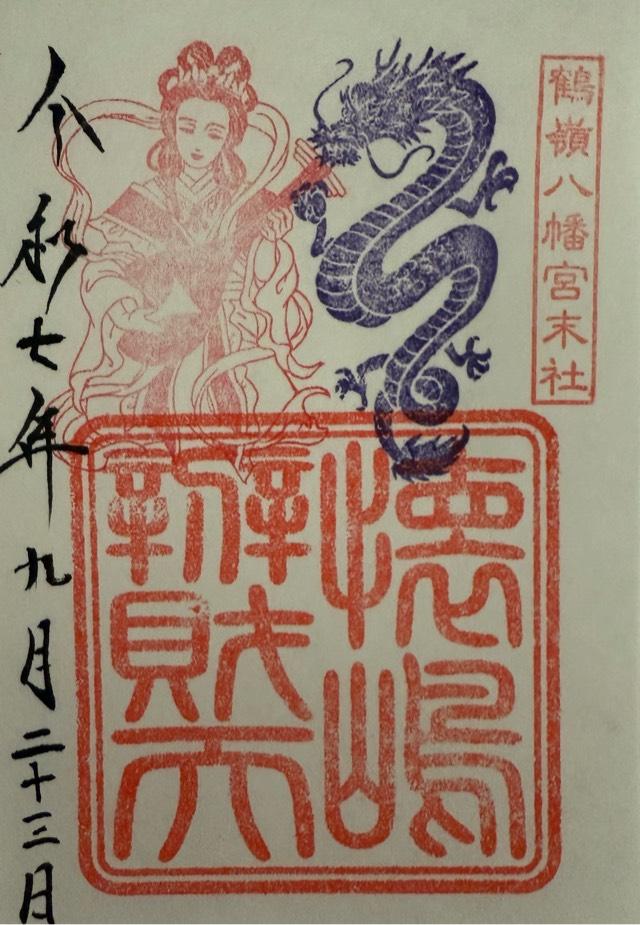 鶴嶺八幡宮末社
懐嶋
辨財天
令和七年九月二十三日